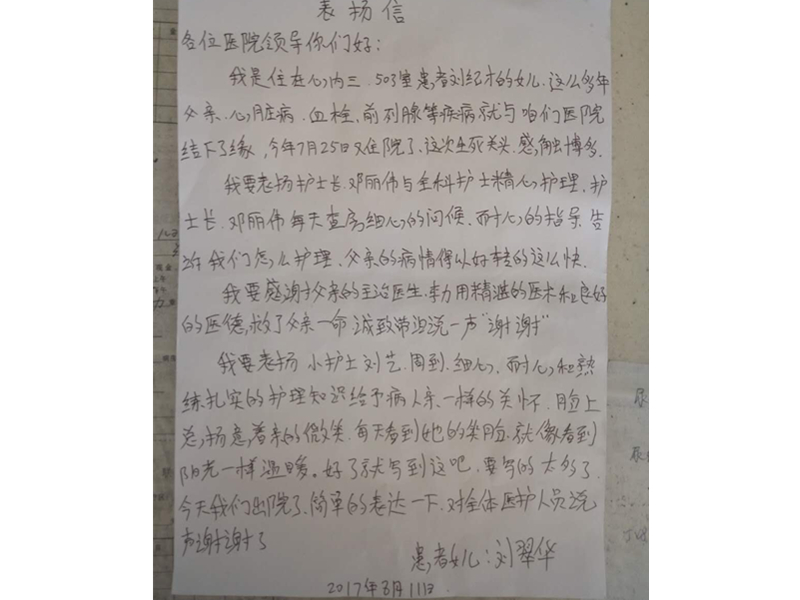 表扬信
各位医院领导你们好：
我是住在心内三.503室患者刘纪才的女儿.这么多年
父亲.心脏病.血栓.前列腺等疾病就与咱们医院
结下了缘,今年7月25日又住院了.这次生死关头.感触博多.
我要表扬护士长.邓丽伟与全科护士精心护理.护
士长.邓丽伟每天查房,细心的问候.耐心的指导.告
诉我们怎么护理.父亲的病情得以好转的这么快.
我要感谢于父亲的主治医生.李力用精湛的医术和良好
的医德,救了父亲一命 诚致带泪说一声"谢谢"
我要表扬 小护士刘艺.周到.细心.耐心和熟
练扎实的护理知识给予病人亲一样的关怀.脸上
总扬意着亲的微笑.每天看到她的笑脸.就像看到
阳光一样温暖。好了就写到这吧.要写的太多了.
今天我们出院了.简单的表达一下.对全体医护人员说
声谢谢了
患者女儿:刘翠华
2017年8月11日